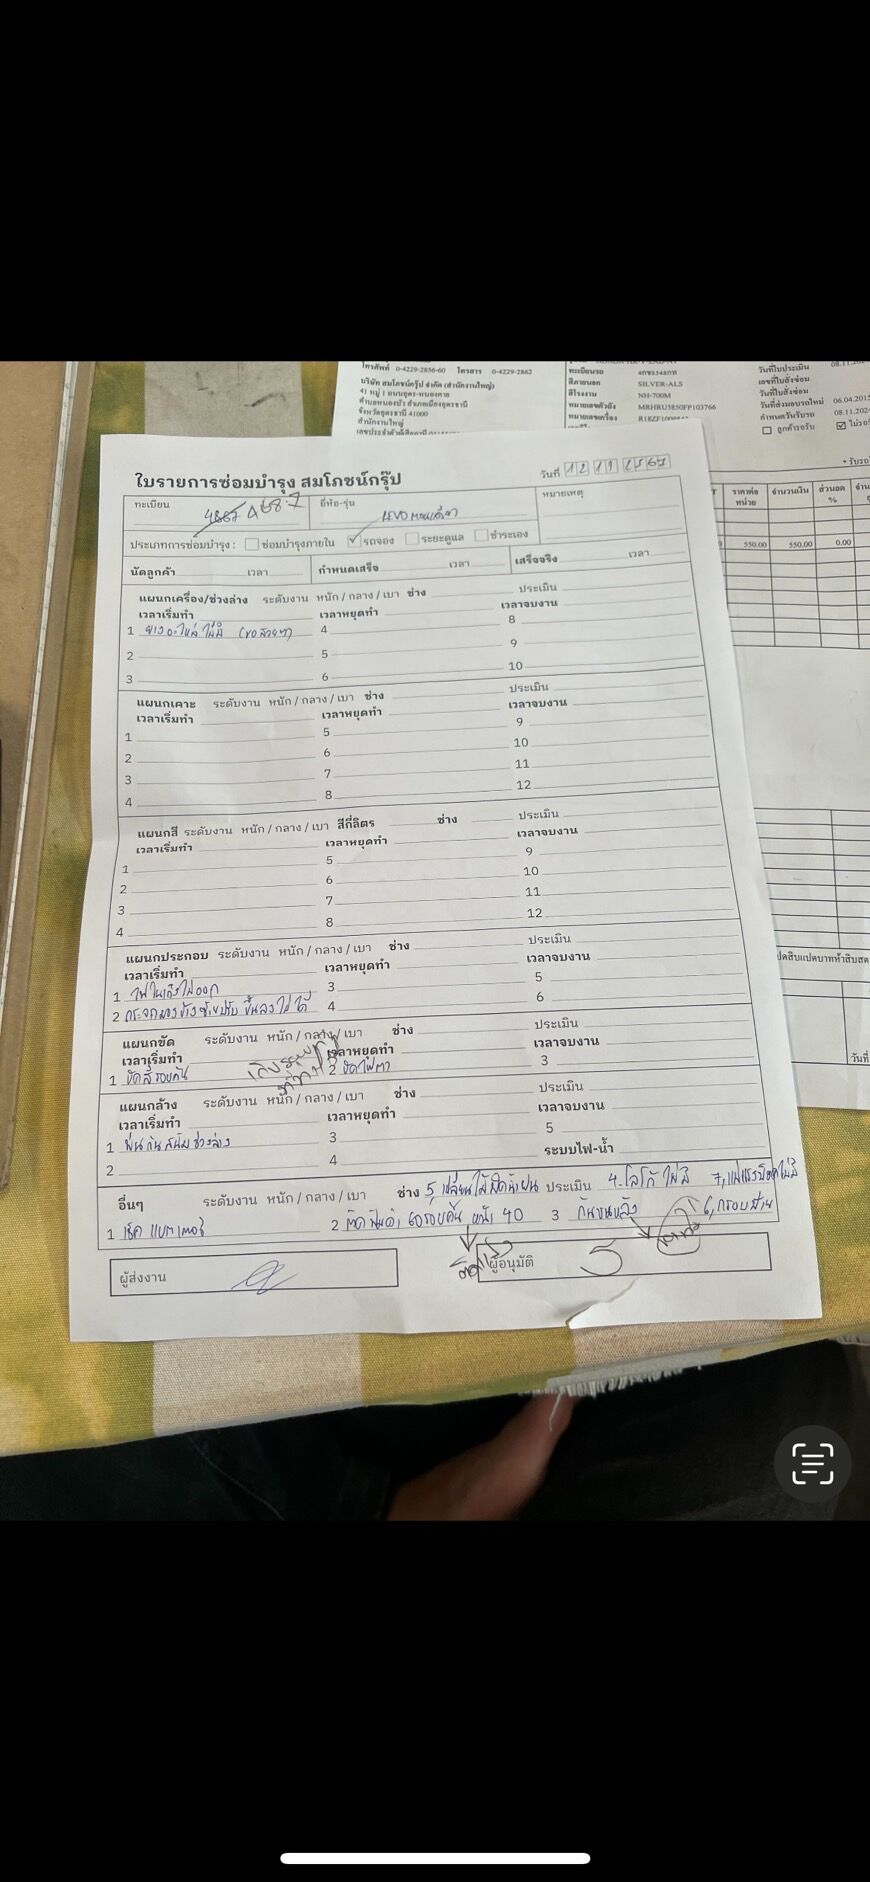 โทรศัพท์ 0-4229-2856-60 โทรสาร 0-4229-2862
บริษัท สมโภชน์กรุ๊ป จำกัด (สำนักงานใหญ่)
41 หมู่ 1 ถนนอุดร-หนองคาย
ตำบลหนองบัว อำเภอเมืองอุดรธานี
จังหวัดอุดรธานี 41000
สำนักงานใหญ่
ทะเบียนรถ
สีภายนอก SILVER-ALS
สีโรงงาน NH-700M
หมายเลขตัวถัง MRHRU5850FP103766
หมายเลขเครื่อง
วันที่ใบประเมิน 08.11.202
เลขที่ใบสั่งซ่อม
วันที่ใบสั่งซ่อม
วันที่ส่งมอบรถใหม่ 06.04.2015
กำหนดวันรับรถ 08.11.202
ลูกค้ารอรับ
ราคาต่อหน่วย จำนวนเงิน ส่วนลด %
550.00 550.00 0.00
ใบรายการซ่อมบำรุง สมโภชน์กรุ๊ป
วันที่ 12 11 2567
ทะเบียน 4687
ยี่ห้อ-รุ่น REVO ตอนเดียว
หมายเหตุ
ประเภทการซ่อมบำรุง : ซ่อมบำรุงภายใน รถจอง ระยะดูแล ชำระเอง
นัดลูกค้า เวลา กำหนดเสร็จ เวลา เสร็จจริง เวลา
แผนกเครื่อง/ช่วงล่าง ระดับงาน หนัก / กลาง / เบา ช่าง ประเมิน
เวลาเริ่มทำ เวลาหยุดทำ เวลาจบงาน
1 ยางอะไหล่ ไม่มี 4 8
2 5 9
3 6 10
แผนกเคาะ ระดับงาน หนัก / กลาง / เบา ช่าง ประเมิน
เวลาเริ่มทำ เวลาหยุดทำ เวลาจบงาน
1 5 9
2 6 10
3 7 11
4 8 12
แผนกสี ระดับงาน หนัก / กลาง / เบา สีกี่ลิตร ช่าง ประเมิน
เวลาเริ่มทำ เวลาหยุดทำ เวลาจบงาน
1 5 9
2 6 10
3 7 11
4 8 12
แผนกประกอบ ระดับงาน หนัก / กลาง / เบา ช่าง ประเมิน
เวลาเริ่มทำ เวลาหยุดทำ เวลาจบงาน
1 ไฟในเก๋งไม่ออก 3 5
2 กระจกมองข้างซ้ายปรับ ขึ้นลงไม่ได้ 4 6
แผนกขัด ระดับงาน หนัก / กลาง / เบา ช่าง ประเมิน
เวลาเริ่มทำ เวลาหยุดทำ เวลาจบงาน
1 ขัดสีรอบคัน 2 ขัดไฟตา 3
แผนกล้าง ระดับงาน หนัก / กลาง / เบา ช่าง ประเมิน
เวลาเริ่มทำ เวลาหยุดทำ เวลาจบงาน
1 พ่นกันสนิมช่วงล่าง 3 5
2 4 ระบบไฟ-น้ำ
อื่นๆ ระดับงาน หนัก / กลาง / เบา ช่าง 5, เปลี่ยนใบปัดน้ำฝน ประเมิน 4. โลโก้ ไม่มี
1 เช็ค แบตเตอรี่ 2 ติดฟิล์มดำ 60 รอบคัน หน้า 40 3 กันชนหลัง 6, กรอบป้าย
ผู้ส่งงาน
ผู้อนุมัติ